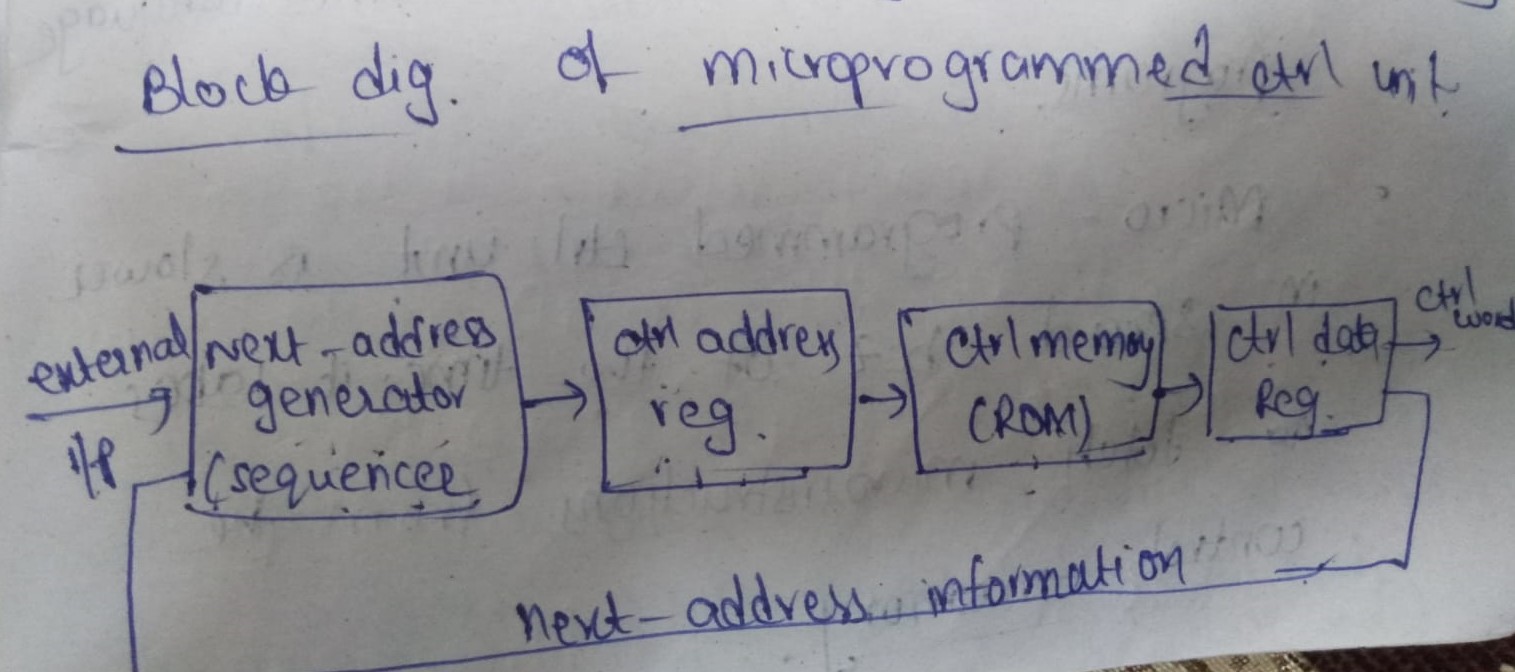 Block dig. of microprogrammed ctrl unit
external
I/P
Next-address
generator
(sequencer
ctrl address
reg.
ctrl memory
(ROM)
ctrl data
Reg.
ctrl
word
next-address information